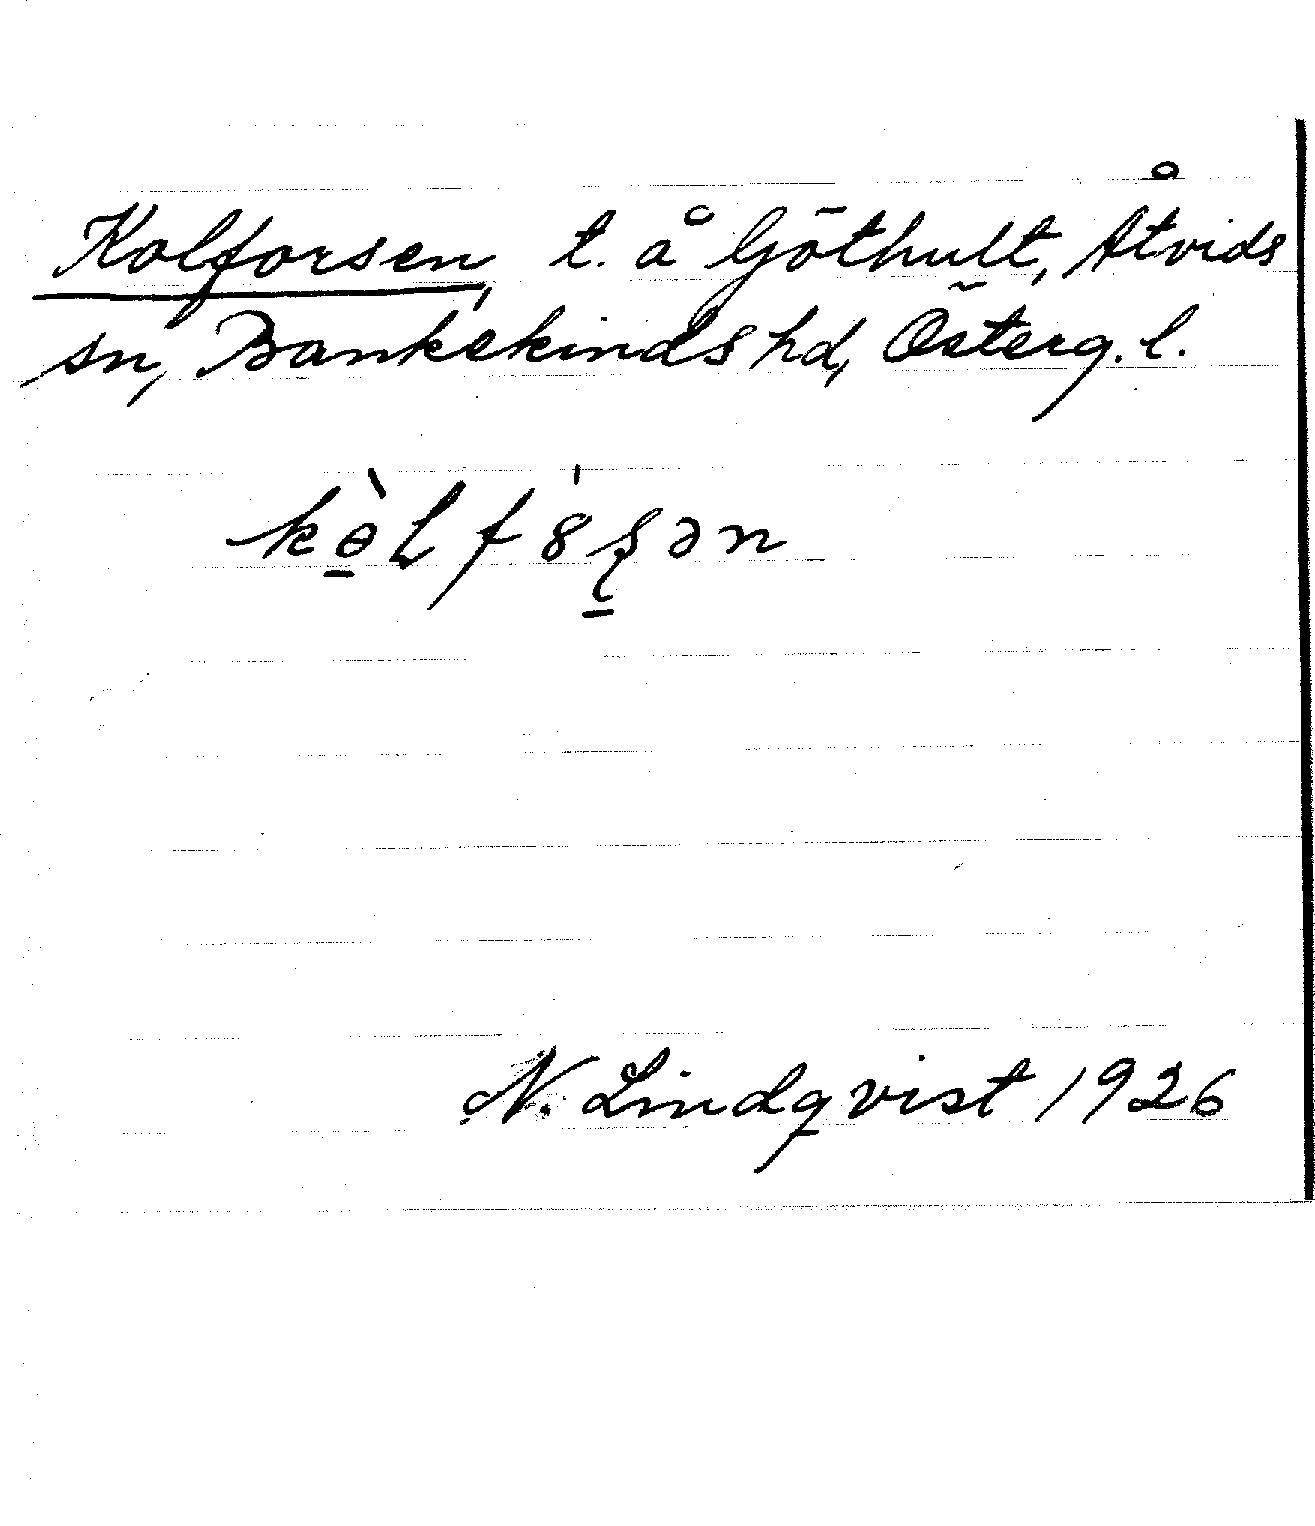 Kolforsen, t. å Göthult, Åtvids
sn, Bankekinds hd, Österg. l.
kɵ̠̀lfó̤ʂən
N. Lindqvist 1926